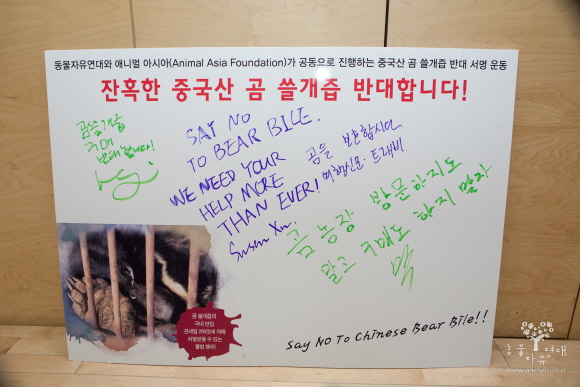 동물자유연대와 애니멀 아시아(Animal Asia Foundation)가 공동으로 진행하는 중국산 곰 쓸개즙 반대 서명 운동
잔혹한 중국산 곰 쓸개즙 반대합니다!
곰쓸개즙
구매
반대합니다!
SAY NO
TO BEAR BILE.
WE NEED YOUR
HELP MORE
THAN EVER!
Susan Xu.
곰을 보호합시다
여행신문. 트래비
곰 농장 방문하지도
말고 구매도 하지 말자
곰 쓸개즙의
국내 반입
관세법 269조에 의해
처벌받을 수 있는
불법 행위!
Say NO To Chinese Bear Bile!!
동물
자유연대